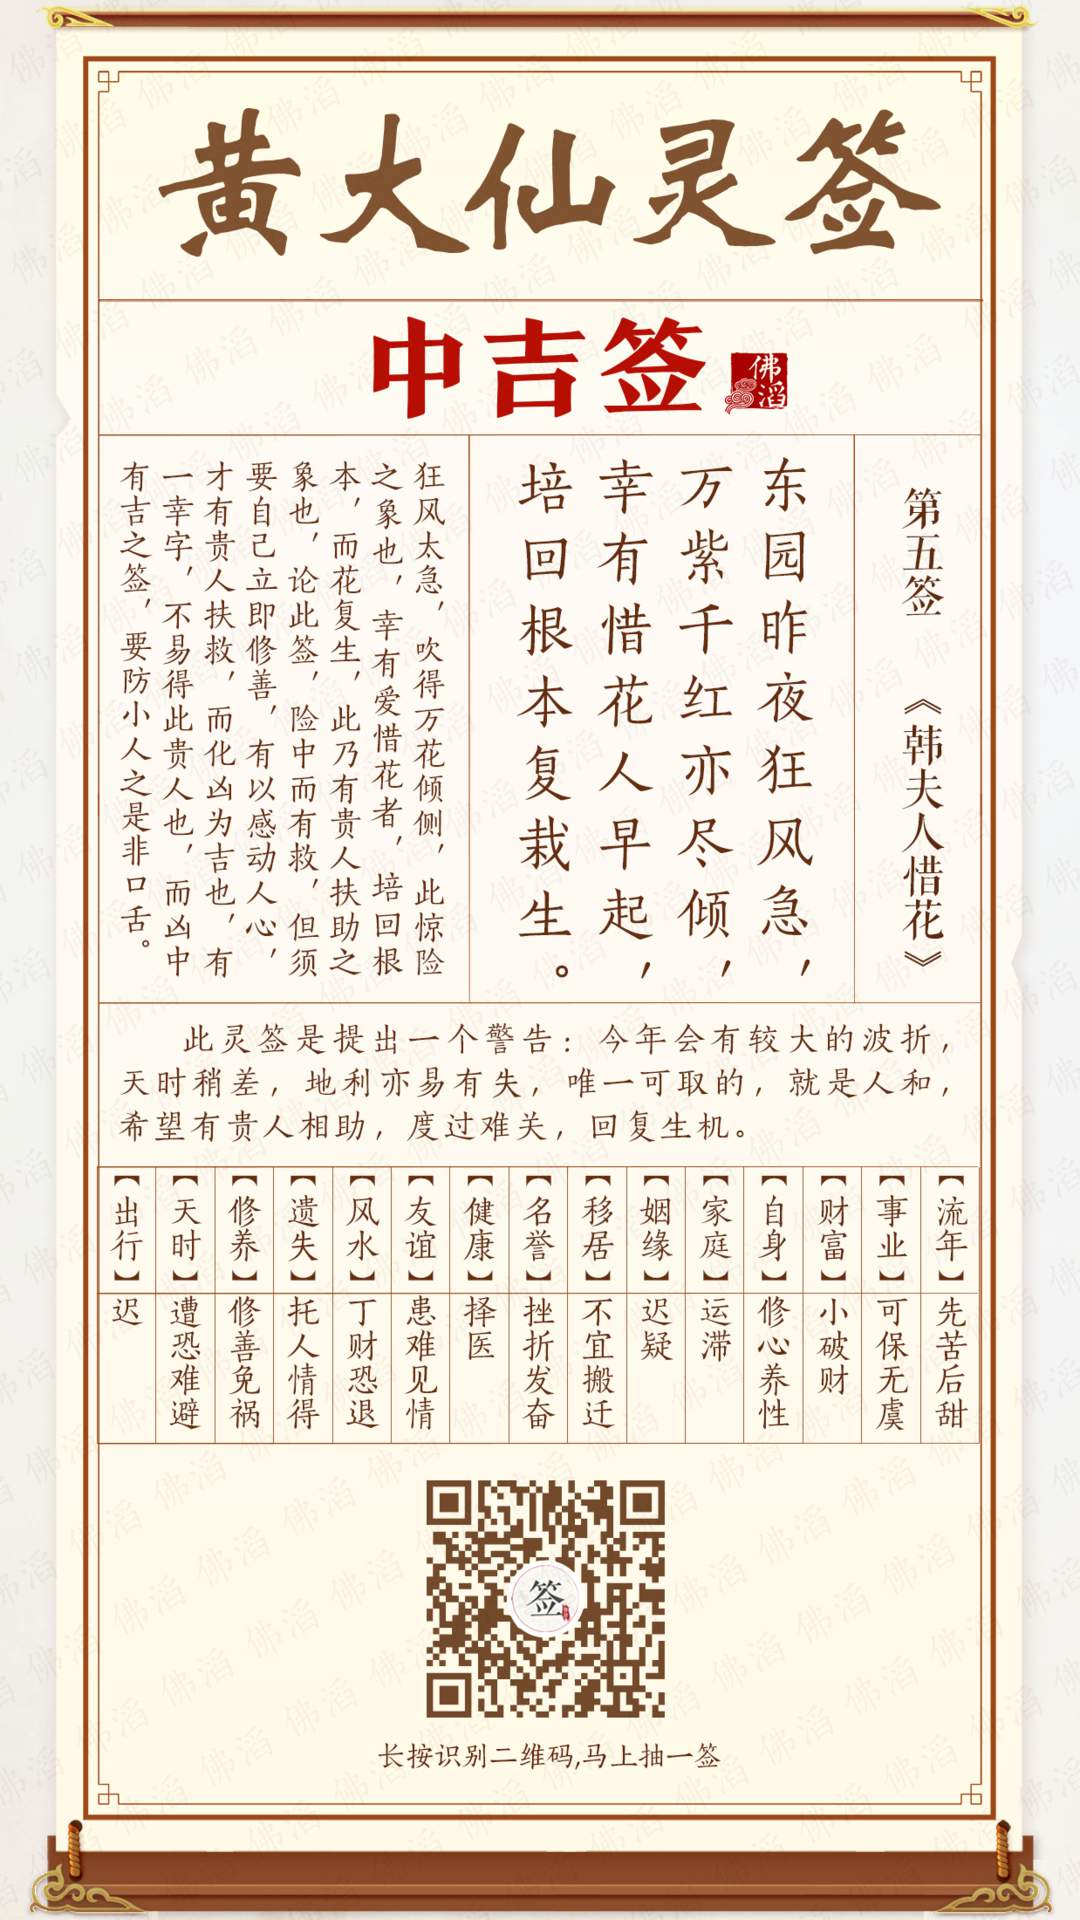 黄大仙灵签
中吉签
佛滔
第五签 《韩夫人惜花》
东园昨夜狂风急，
万紫千红亦尽倾，
幸有惜花人早起，
培回根本复栽生。
狂风太急，吹得万花倾侧，此惊险
之象也，幸有爱惜花者，培回根
本，而花复生，此乃有贵人扶助之
象也，论此签，险中而有救，但须
要自己立即修善，有以感动人心，
才有贵人扶救，而化凶为吉也，有
一幸字，不易得此贵人也，而凶中
有吉之签，要防小人之是非口舌。
此灵签是提出一个警告：今年会有较大的波折，
天时稍差，地利亦易有失，唯一可取的，就是人和，
希望有贵人相助，度过难关，回复生机。
【流年】先苦后甜
【事业】可保无虞
【财富】小破财
【自身】修心养性
【家庭】运滞
【姻缘】迟疑
【移居】不宜搬迁
【名誉】挫折发奋
【健康】择医
【友谊】患难见情
【风水】丁财恐退
【遗失】托人情得
【修养】修善免祸
【天时】遭恐难避
【出行】迟
签
长按识别二维码,马上抽一签